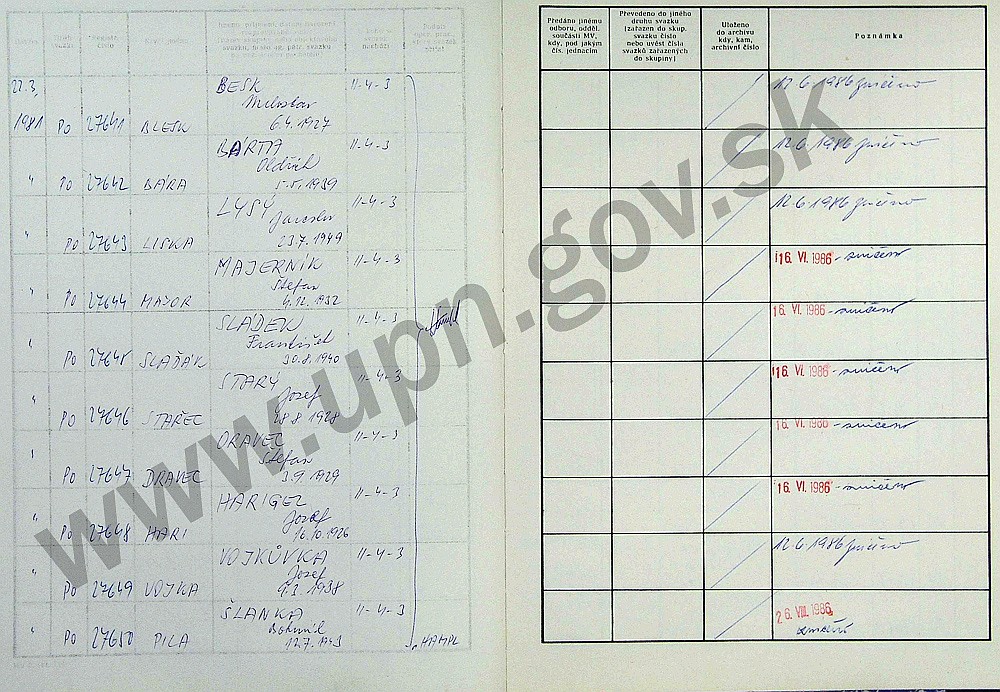 Předáno jinému
odboru, odděl.
součásti MV,
kdy, pod jakým
čís. jednacím
Převedeno do jiného
druhu svazku
(zařazen do skup.
svazku číslo
nebo uvést čísla
svazků zařazených
do skupiny)
Uloženo
do archivu
kdy, kam,
archivní číslo
Poznámka
22.3. BESK II-4-3 12.6.1986
Miloslav
1981 Po 27641 BLESK 6.4.1927
BÁRTA II-4-3 12.6.1986
Oldřich
" Po 27642 BÁRA 5.5.1939
LYSÝ II-4-3 12.6.1986
Jaroslav
" Po 27643 LISKA 23.7.1949
MAJERNÍK II-4-3 16. VI. 1986 - zničeno
Štefan
" Po 27644 MAJOR 4.12.1932
SLÁDEK II-4-3 16. VI. 1986 - zničeno
František
" Po 27645 SLAĎÁK 30.8.1940
STARÝ II-4-3 16. VI. 1986 - zničeno
Jozef
" Po 27646 STAŘEC 28.8.1928
ORAVEC II-4-3 16. VI. 1986 - zničeno
Štefan
" Po 27647 DRAVEC 3.9.1929
HARIGEL II-4-3 16. VI. 1986 - zničeno
Jozef
" Po 27648 HARI 16.10.1926
VOJKŮVKA II-4-3 12.6.1986
Josef
" Po 27649 VOJKA 9.3.1938
ŠLANKA II-4-3 26. VIII. 1986
Bohumil
" Po 27650 PILA 12.7.1943 HAMPL
www.upn.gov.sk